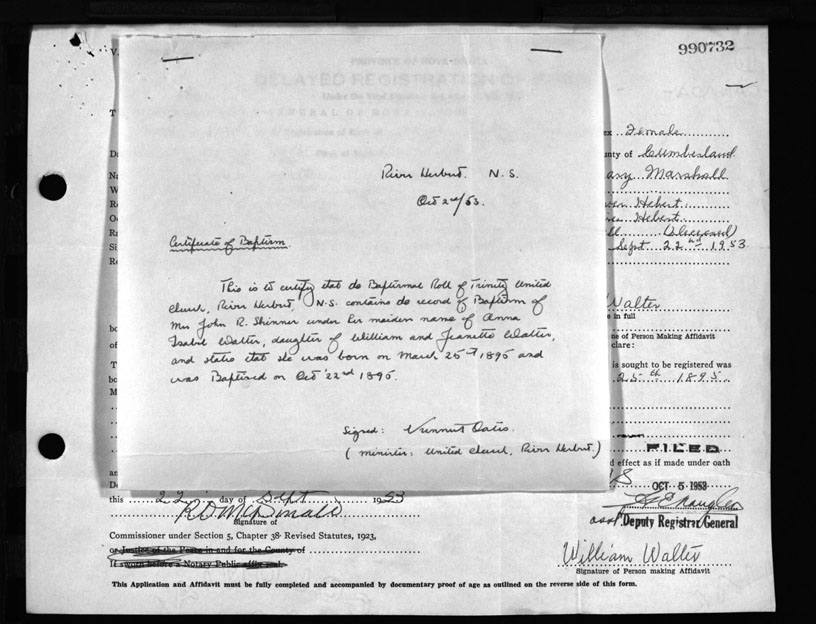 990732
PROVINCE OF NOVA SCOTIA
DELAYED REGISTRATION OF
River Herbert. N. S.
Oct 2nd/53.
Certificate of Baptism.
This is to certify that the Baptismal Roll of Trinity United
Church, River Herbert, N.S. contains the record of Baptism of
Mrs John R. Skinner under her maiden name of Anna
Isabel Walter, daughter of William and Jeanette Walter,
and states that she was born on March 25th 1895 and
was Baptised on Oct 22nd 1895.
Signed: Oates.
(minister: United Church, River Herbert.)
ex Female
nty of Cumberland
ary Marshall
Hebert
Hebert
(Deceased)
Sept 22nd 1953
Walter
e in full
ne of Person Making Affidavit
clare:
is sought to be registered was
25th 1895
FILED
d effect as if made under oath
OCT 5 1953
asst Deputy Registrar General
this 22 day of Sept 1953
R D McDonald
Signature of
Commissioner under Section 5, Chapter 38 Revised Statutes, 1923,
or Justice of the Peace in and for the County of
If sworn before a Notary Public affix seal.
William Walter
Signature of Person making Affidavit
This Application and Affidavit must be fully completed and accompanied by documentary proof of age as outlined on the reverse side of this form.